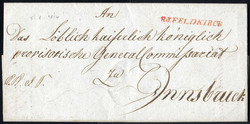 An
R.FELDKIRCH
Das Löblich kaiserlich königlich
provisorische General Commissariat
Zu
Innsbruck